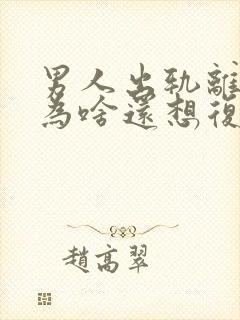 男人出軌離
為啥還想復
趙高翠